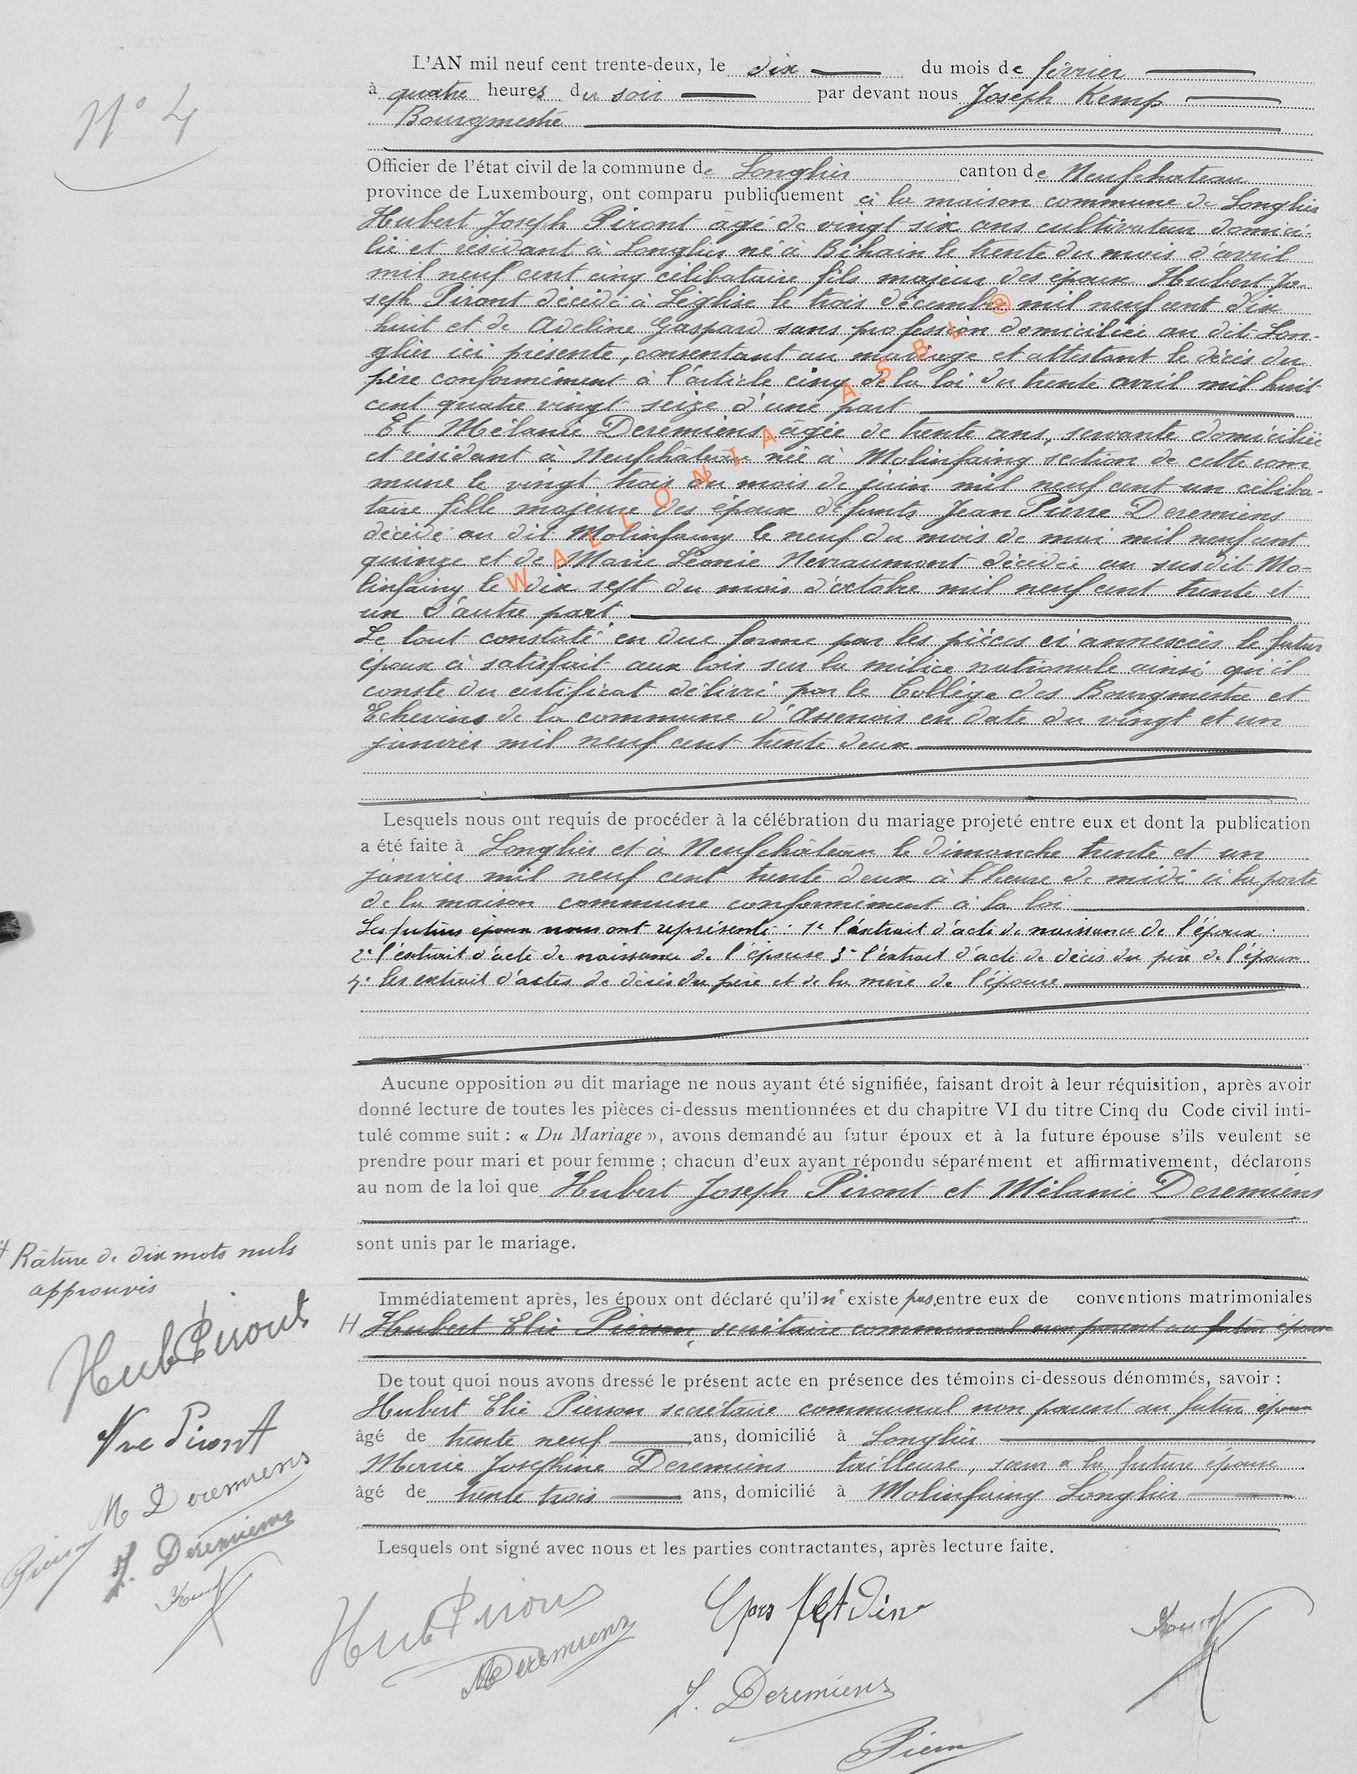 N° 4
L'AN mil neuf cent trente-deux, le dix du mois de février
à quatre heures du soir par devant nous Joseph Kemp
Bourgmestre
Officier de l'état civil de la commune de Longlier canton de Neufchateau
province de Luxembourg, ont comparu publiquement à la maison commune de Longlier
Hubert Joseph Piront âgé de vingt six ans cultivateur domici-
lié et résidant à Longlier né à Bihain le trente du mois d'avril
mil neuf cent cinq célibataire fils majeur des époux Hubert Jo-
seph Piront décédé à Léglise le trois décembre mil neuf cent dix
huit et de Adeline Gaspard sans profession domiciliée au dit Lon-
glier ici présente, consentant au mariage et attestant le décès du
père conformément à l'article cinq de la loi du trente avril mil huit
cent quatre vingt seize d'une part
Et Mélanie Deremiens âgée de trente ans, servante domiciliée
et résidant à Neufchâteau née à Molinfaing section de cette com
mune le vingt trois du mois de juin mil neuf cent un céliba-
taire fille majeure des époux défunts Jean Pierre Deremiens
décédé au dit Molinfaing le neuf du mois de mai mil neuf cent
quinze et de Marie Léonie Nerraumont décédée au susdit Mo-
linfaing le dix sept du mois d'octobre mil neuf cent trente et
un d'autre part
Le tout constaté en due forme par les pièces ci annexées le futur
époux à satisfait aux lois sur la milice nationale ainsi qu'il
conste du certificat délivré par le Collège des Bourgmestre et
Echevins de la commune d'Assenois en date du vingt et un
janvier mil neuf cent trente deux
Lesquels nous ont requis de procéder à la célébration du mariage projeté entre eux et dont la publication
a été faite à Longlier et à Neufchâteau le dimanche trente et un
janvier mil neuf cent trente deux à l'heure de midi à la porte
de la maison commune conformément à la loi
Les futurs époux nous ont représenté : 1° l'extrait d'acte de naissance de l'époux
2° l'extrait d'acte de naissance de l'épouse 3° l'extrait d'acte de décès du père de l'époux
4° les extrait d'actes de décès du père et de la mère de l'épouse
Aucune opposition au dit mariage ne nous ayant été signifiée, faisant droit à leur réquisition, après avoir
donné lecture de toutes les pièces ci-dessus mentionnées et du chapitre VI du titre Cinq du Code civil inti-
tulé comme suit : « Du Mariage », avons demandé au futur époux et à la future épouse s'ils veulent se
prendre pour mari et pour femme ; chacun d'eux ayant répondu séparément et affirmativement, déclarons
au nom de la loi que Hubert Joseph Piront et Mélanie Deremiens
sont unis par le mariage.
Râture de dix mots nuls
approuvés
Immédiatement après, les époux ont déclaré qu'il n'existe pas entre eux de conventions matrimoniales
H Hubert Elie Pierson, secrétaire communal non parent au futur époux
De tout quoi nous avons dressé le présent acte en présence des témoins ci-dessous dénommés, savoir :
Hubert Elie Pierson secrétaire communal non parent au futur époux
âgé de trente neuf ans, domicilié à Longlier
Marie Joséphine Deremiens tailleuse, sœur à la future épouse
âgé de trente trois ans, domicilié à Molinfaing Longlier
Lesquels ont signé avec nous et les parties contractantes, après lecture faite.
Hub Piront
Vve Piront
M Deremiens
J. Deremiens
Pierson
Kemp
Hub Piront
MDeremiens
J. Deremiens
Kemp
Pierson
WALLONIA ASBL ®